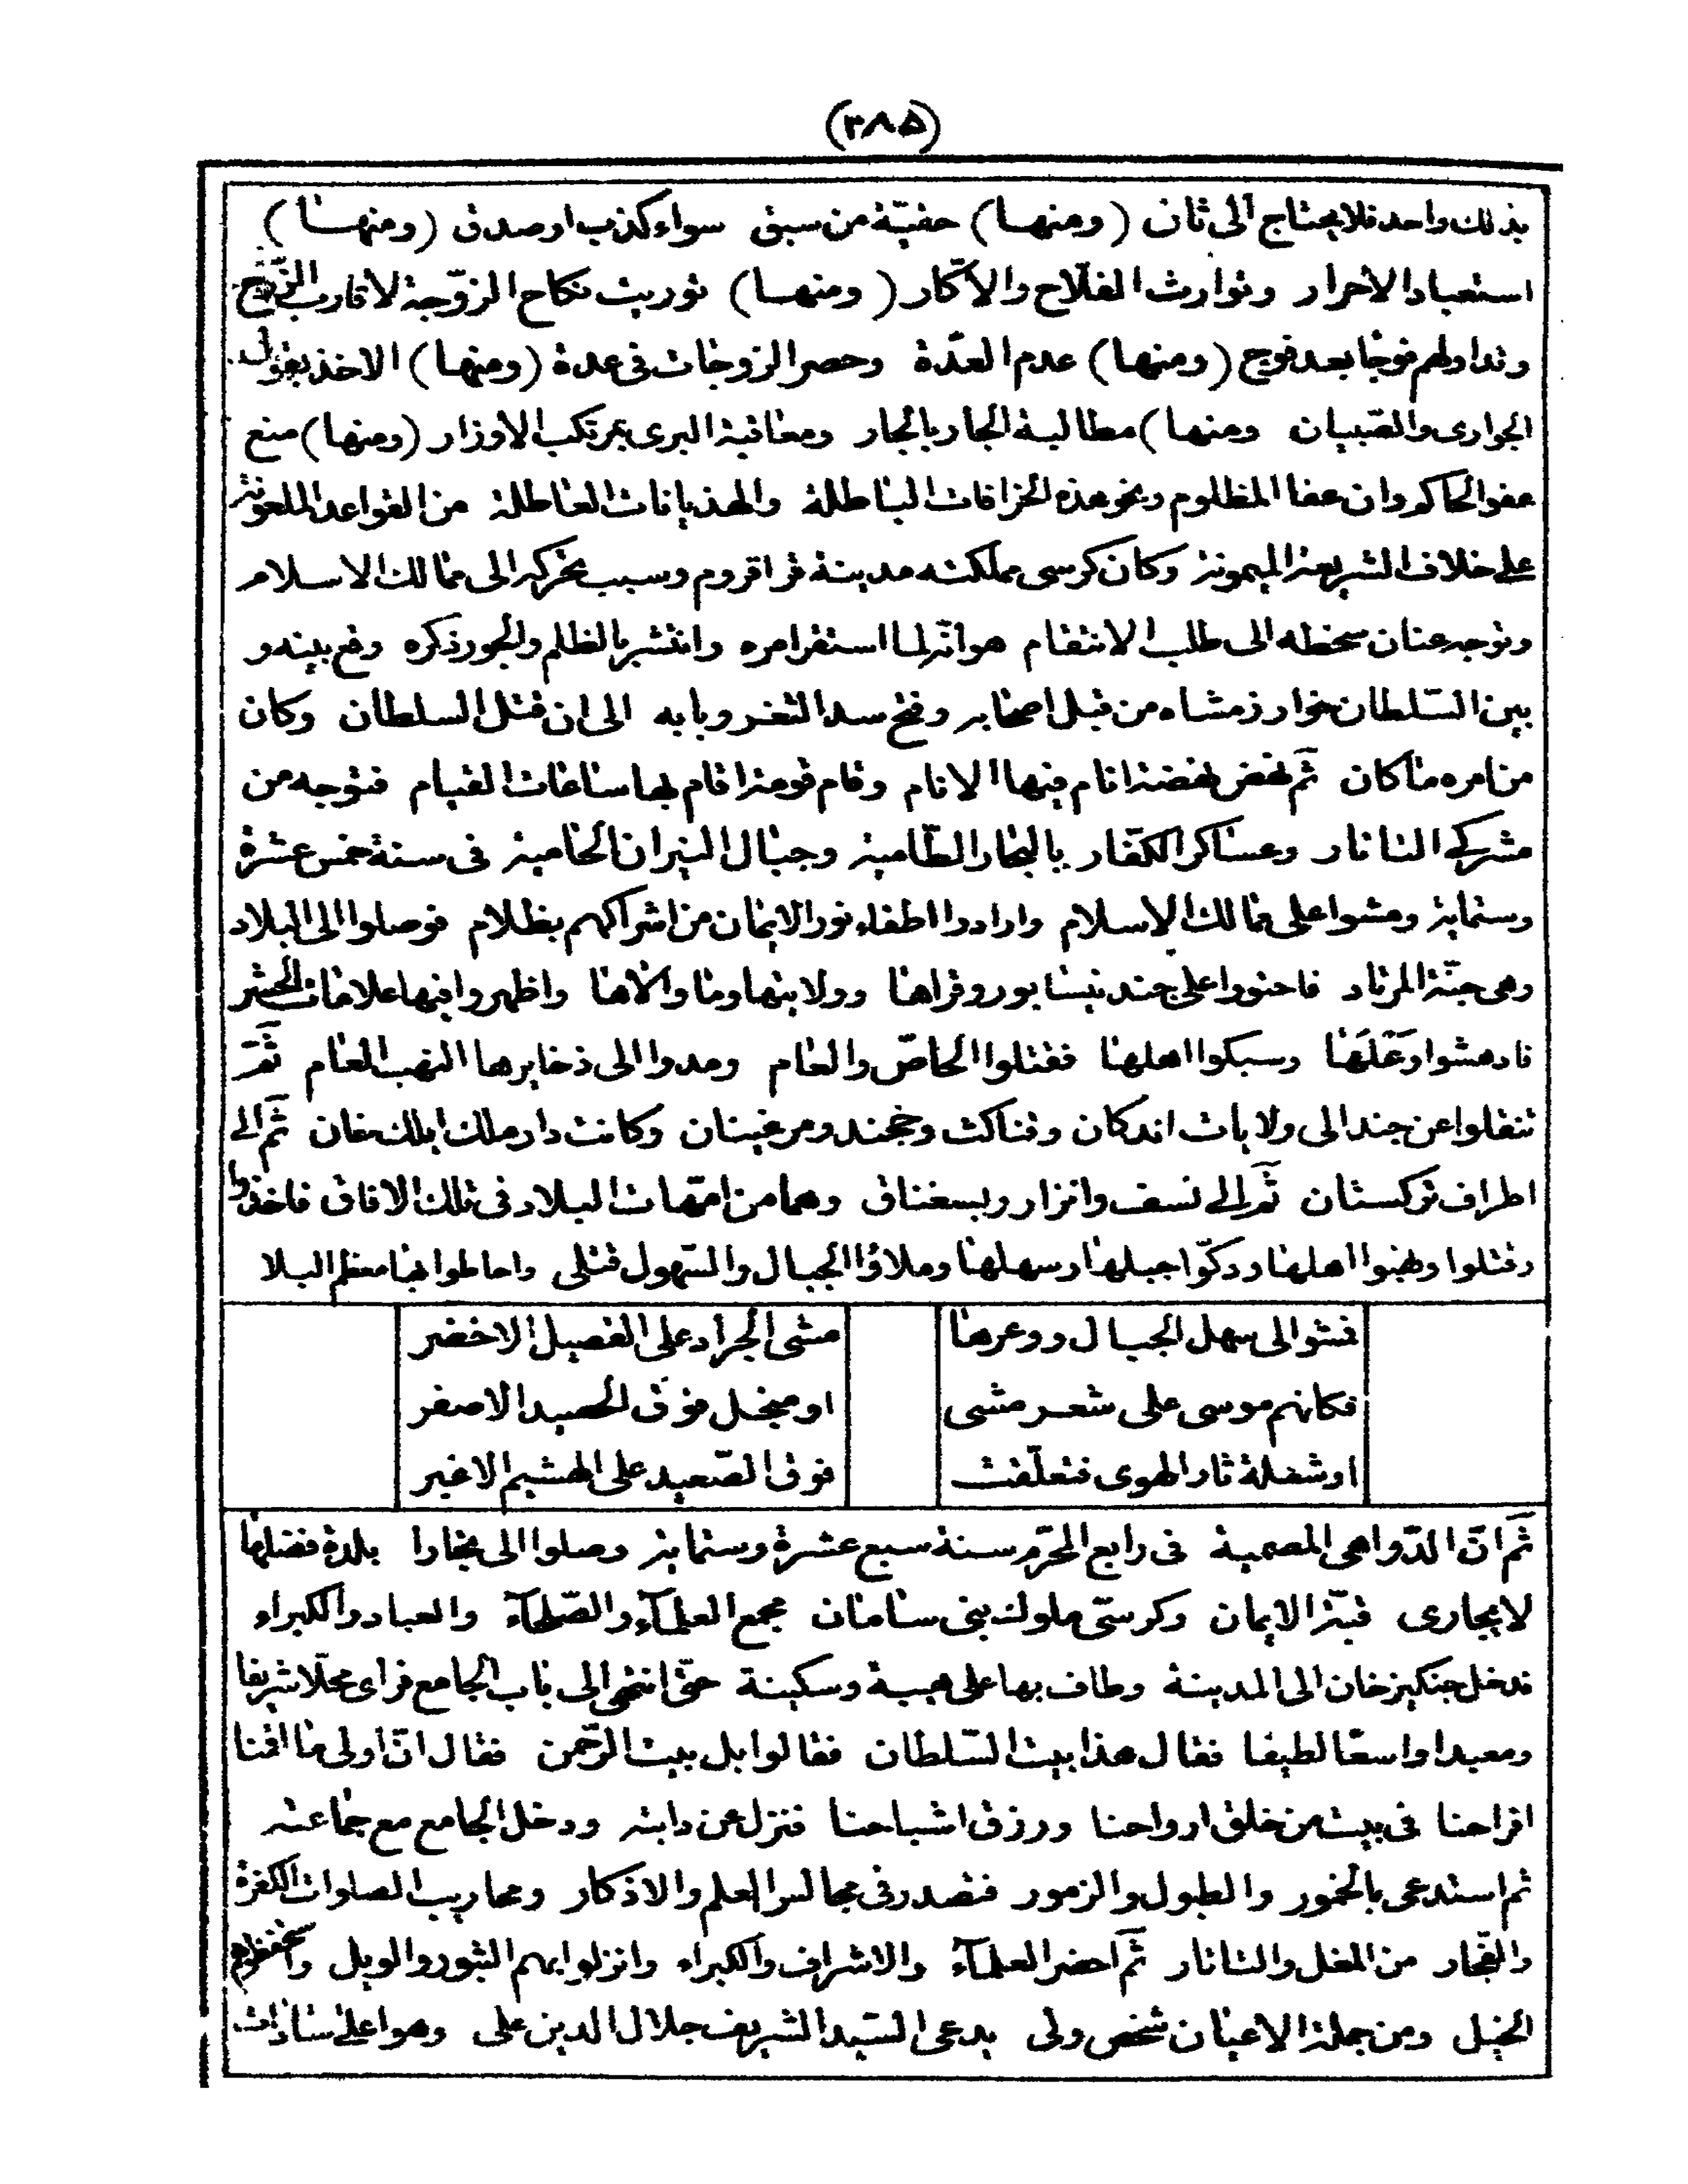 (٣٨٥)
بذلك واحد فلا يحتاج الى ثان (ومنها) حقيّة من سبق سواء كذب او صدق (ومنها)
استعباد الاحرار وتوارث الفلّاح والاكّار (ومنها) توريث نكاح الزوّجة لاقارب الزّوج
وتداولهم فوجا بعد فوج (ومنها) عدم العدّة وحصر الزوجات فى عدة (ومنها) الاخذ بقول
الجوارى والصّبيان ومنها) مطالبة الجار بالجار ومعاقبة البرى بمرتكب الاوزار (ومنها) منع
عفو الحاكم وان عفا المظلوم ونحو هذه الخزافات الباطلة والهذيانات العاطلة من القواعد الملعونة
على خلاف الشريعة الميمونة وكان كرسى مملكته مدينة قراقروم وسبب تحركه الى ممالك الاسلام
وتوجه عنان سخطه الى طلب الانتقام هو انّه لما استقر امره وانتشر بالظلم والجور ذكره وقع بينه و
بين السّلطان خوارزمشاه من قبل اصحابه وفتح سد الثغر وبابه الى ان قتل السلطان وكان
من امره ما كان ثمّ نهض نهضة انام فيها الانام وقام قومة اقام بها ساعات القيام فتوجه من
مشركى التاتار وعساكر الكفّار بالبحار الطّامية وجبال النيران الحامية فى سنة خمس عشرة
وستماية ومشوا على ممالك الاسلام وارادوا اطفاء نور الايمان من اشراكهم بظلام فوصلوا الى البلاد
وهى جنّة المرتاد فاحتووا على جند نيسابور وقراها وولايتها وما والاها واظهروا فيها علامات الحشر
فادهشوا وَعْلَهَا وسبكوا اهلها فقتلوا الخاصّ والعام ومدوا الى ذخايرها النهب العام ثمّ
تنقلوا عن جند الى ولايات اندكان وفناكث وخجند ومرغينان وكانت دار ملك ايلك خان ثمّ الى
اطراف تركستان ثمّ الى نسف وانزار وبسغناق وهما من امّهات البلاد فى تلك الافاق فاخذوا
وقتلوا ونهبوا اهلها ودكّوا جبلها وسهلها وملاؤا الجبال والسّهول قتلى واحاطوا بها معظم البلا
فمشوا الى سهل الجبال ووعرها مشى الجراد على الفصيل الاخضر
فكانهم موسى على شعر مشى او منجل فوق الحصيد الاصفر
او شعلة ثار الهوى فتعلّقت فوق الصّعيد على الهشيم الاغبر
ثمّ انّ الدّواهى المصمية فى رابع المحرّم سنة سبع عشرة وستماية وصلوا الى بخارا بلدة فضلها
لا يجارى قبّة الايمان وكرسىّ ملوك بنى سامان مجمع العلمآء والصّلحآء والعباد والكبراء
فدخل جنكيز خان الى المدينة وطاف بها على هيبة وسكينة حتى انتهى الى باب الجامع فراى محلّا شريفا
ومعبدا واسعًا لطيفا فقال هذا بيت السّلطان فقالوا بل بيت الرّحمن فقال انّ اولى ما اقمنا
افراحنا فى بيت من خلق ارواحنا ورزق اشباحنا فنزل عن دابته ودخل الجامع مع جماعته
ثم استدعى بالخمور والطبول والزمور فتصدر فى مجالس العلم والاذكار ومحاريب الصلوات الكفرة
والفجّار من المغل والتاتار ثمّ احضر العلمآء والاشراف والكبراء وانزلوا بهم الثبور والويل واستحفظوهم
الخيل ومن جملة الاعيان شخص ولى يدعى السّيد الشريف جلال الدين على وهو اعلى سادات